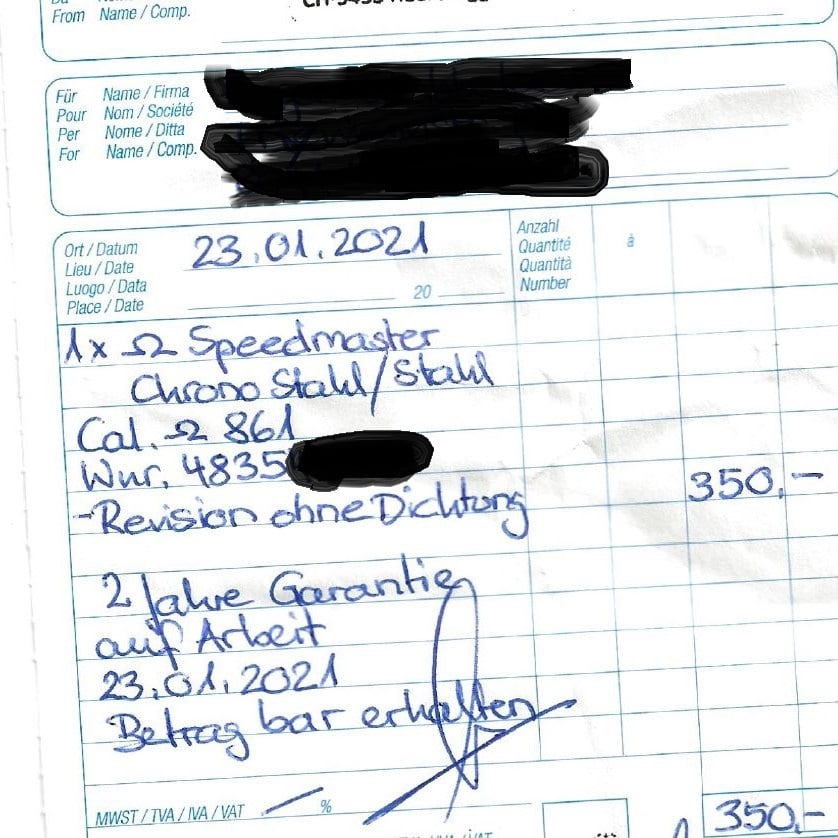 From Name / Comp.
Für Name / Firma
Pour Nom / Société
Per Nome / Ditta
For Name / Comp.
Ort / Datum 23.01.2021
Lieu / Date
Luogo / Data
Place / Date 20
Anzahl à
Quantité
Quantità
Number
1x Ω Speedmaster
Chrono Stahl/Stahl
Cal. Ω 861
Wnr. 4835
-Revision ohne Dichtung 350.-
2 Jahre Garantie
auf Arbeit
23.01.2021
Betrag bar erhalten
MWST / TVA / IVA / VAT %
350.-